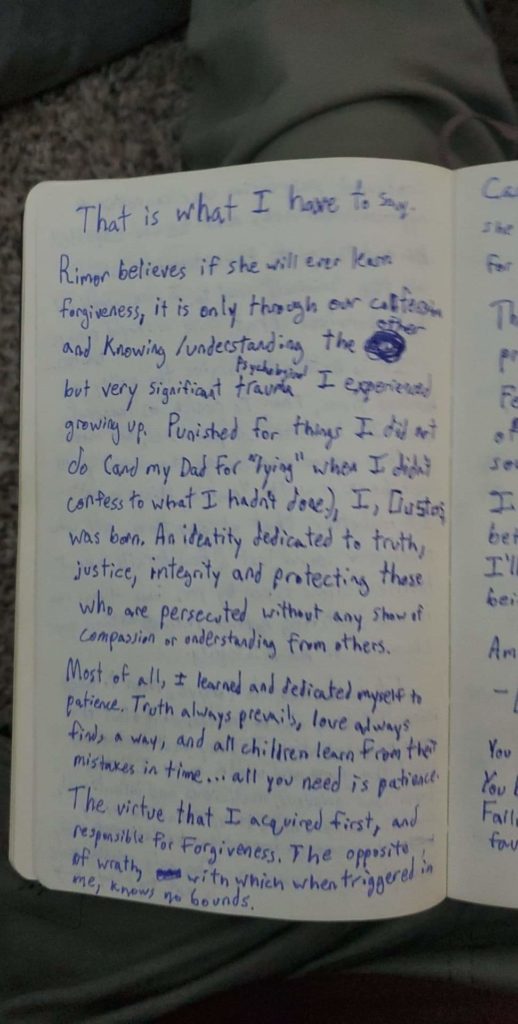 That is what I have to say.
Rimor believes if she will ever learn
forgiveness, it is only through our confession
other
and Knowing/understanding the
Psychological
but very significant trauma I experienced
growing up. Punished for things I did not
do (and my Dad for "lying" when I didn't
confess to what I hadn't done.), I,
was born. An identity dedicated to truth,
justice, integrity and protecting those
who are persecuted without any show of
compassion or understanding from others.
Most of all, I learned and dedicated myself to
patience. Truth always prevails, love always
finds a way, and all children learn from their
mistakes in time... all you need is patience.
The virtue that I acquired first, and
responsible for Forgiveness. The opposite
of wrath, with which when triggered in
me, knows no bounds.
Ca
she
For
Th
pr
Fe
of
so
I
bet
I'll
bei
Am
You
You
Fall
fav